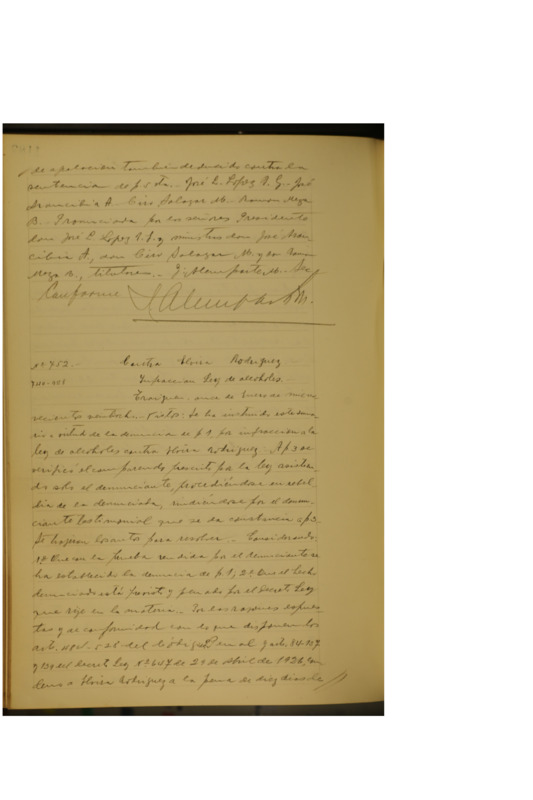 de apelacion tambien deducido contra la
sentencia de f. 5 ta.- José L. Lopez V. G.- José
Arancibia A.- Ciro Salazar M.- Ramon Meza
B.- Pronunciada por los señores Presidente
don José L. Lopez V. G. y ministros don José Aran
cibia A, don Ciro Salazar M. y don Ramon
Meza B., titulares.- J. Alemparte M.- Sec
Conforme
Nº 952.- Contra Eloisa Rodriguez
Infraccion Ley de alcoholes.
Traiguen, once de Enero de mil no
vecientos veintiocho.- Vistos: Se ha instruido este suma
rio a virtud de la denuncia de f. 1 por infraccion a la
ley de alcoholes contra Eloisa Rodriguez. A f. 3 se
verificó el comparendo prescrito por la ley asistien
do solo el denunciante, procediéndose en rebel
dia de la denunciada, rindiéndose por el denun
ciante la testimonial que se da constancia a f. 3.
Se trajeron los autos para resolver.- Considerando:
1º Que con la prueba rendida por el denunciante se
ha establecido la denuncia de f. 1; 2º Que el hecho
denunciado está previsto y penado por el Decreto Ley
que rije en la materia.- Por las razones espues
tas y de conformidad con lo que disponen los
art. del Código Penal y art.
y del Decreto Ley Nº de 29 de abril de 1926, con
deno a Eloisa Rodriguez a la pena de diez dias de